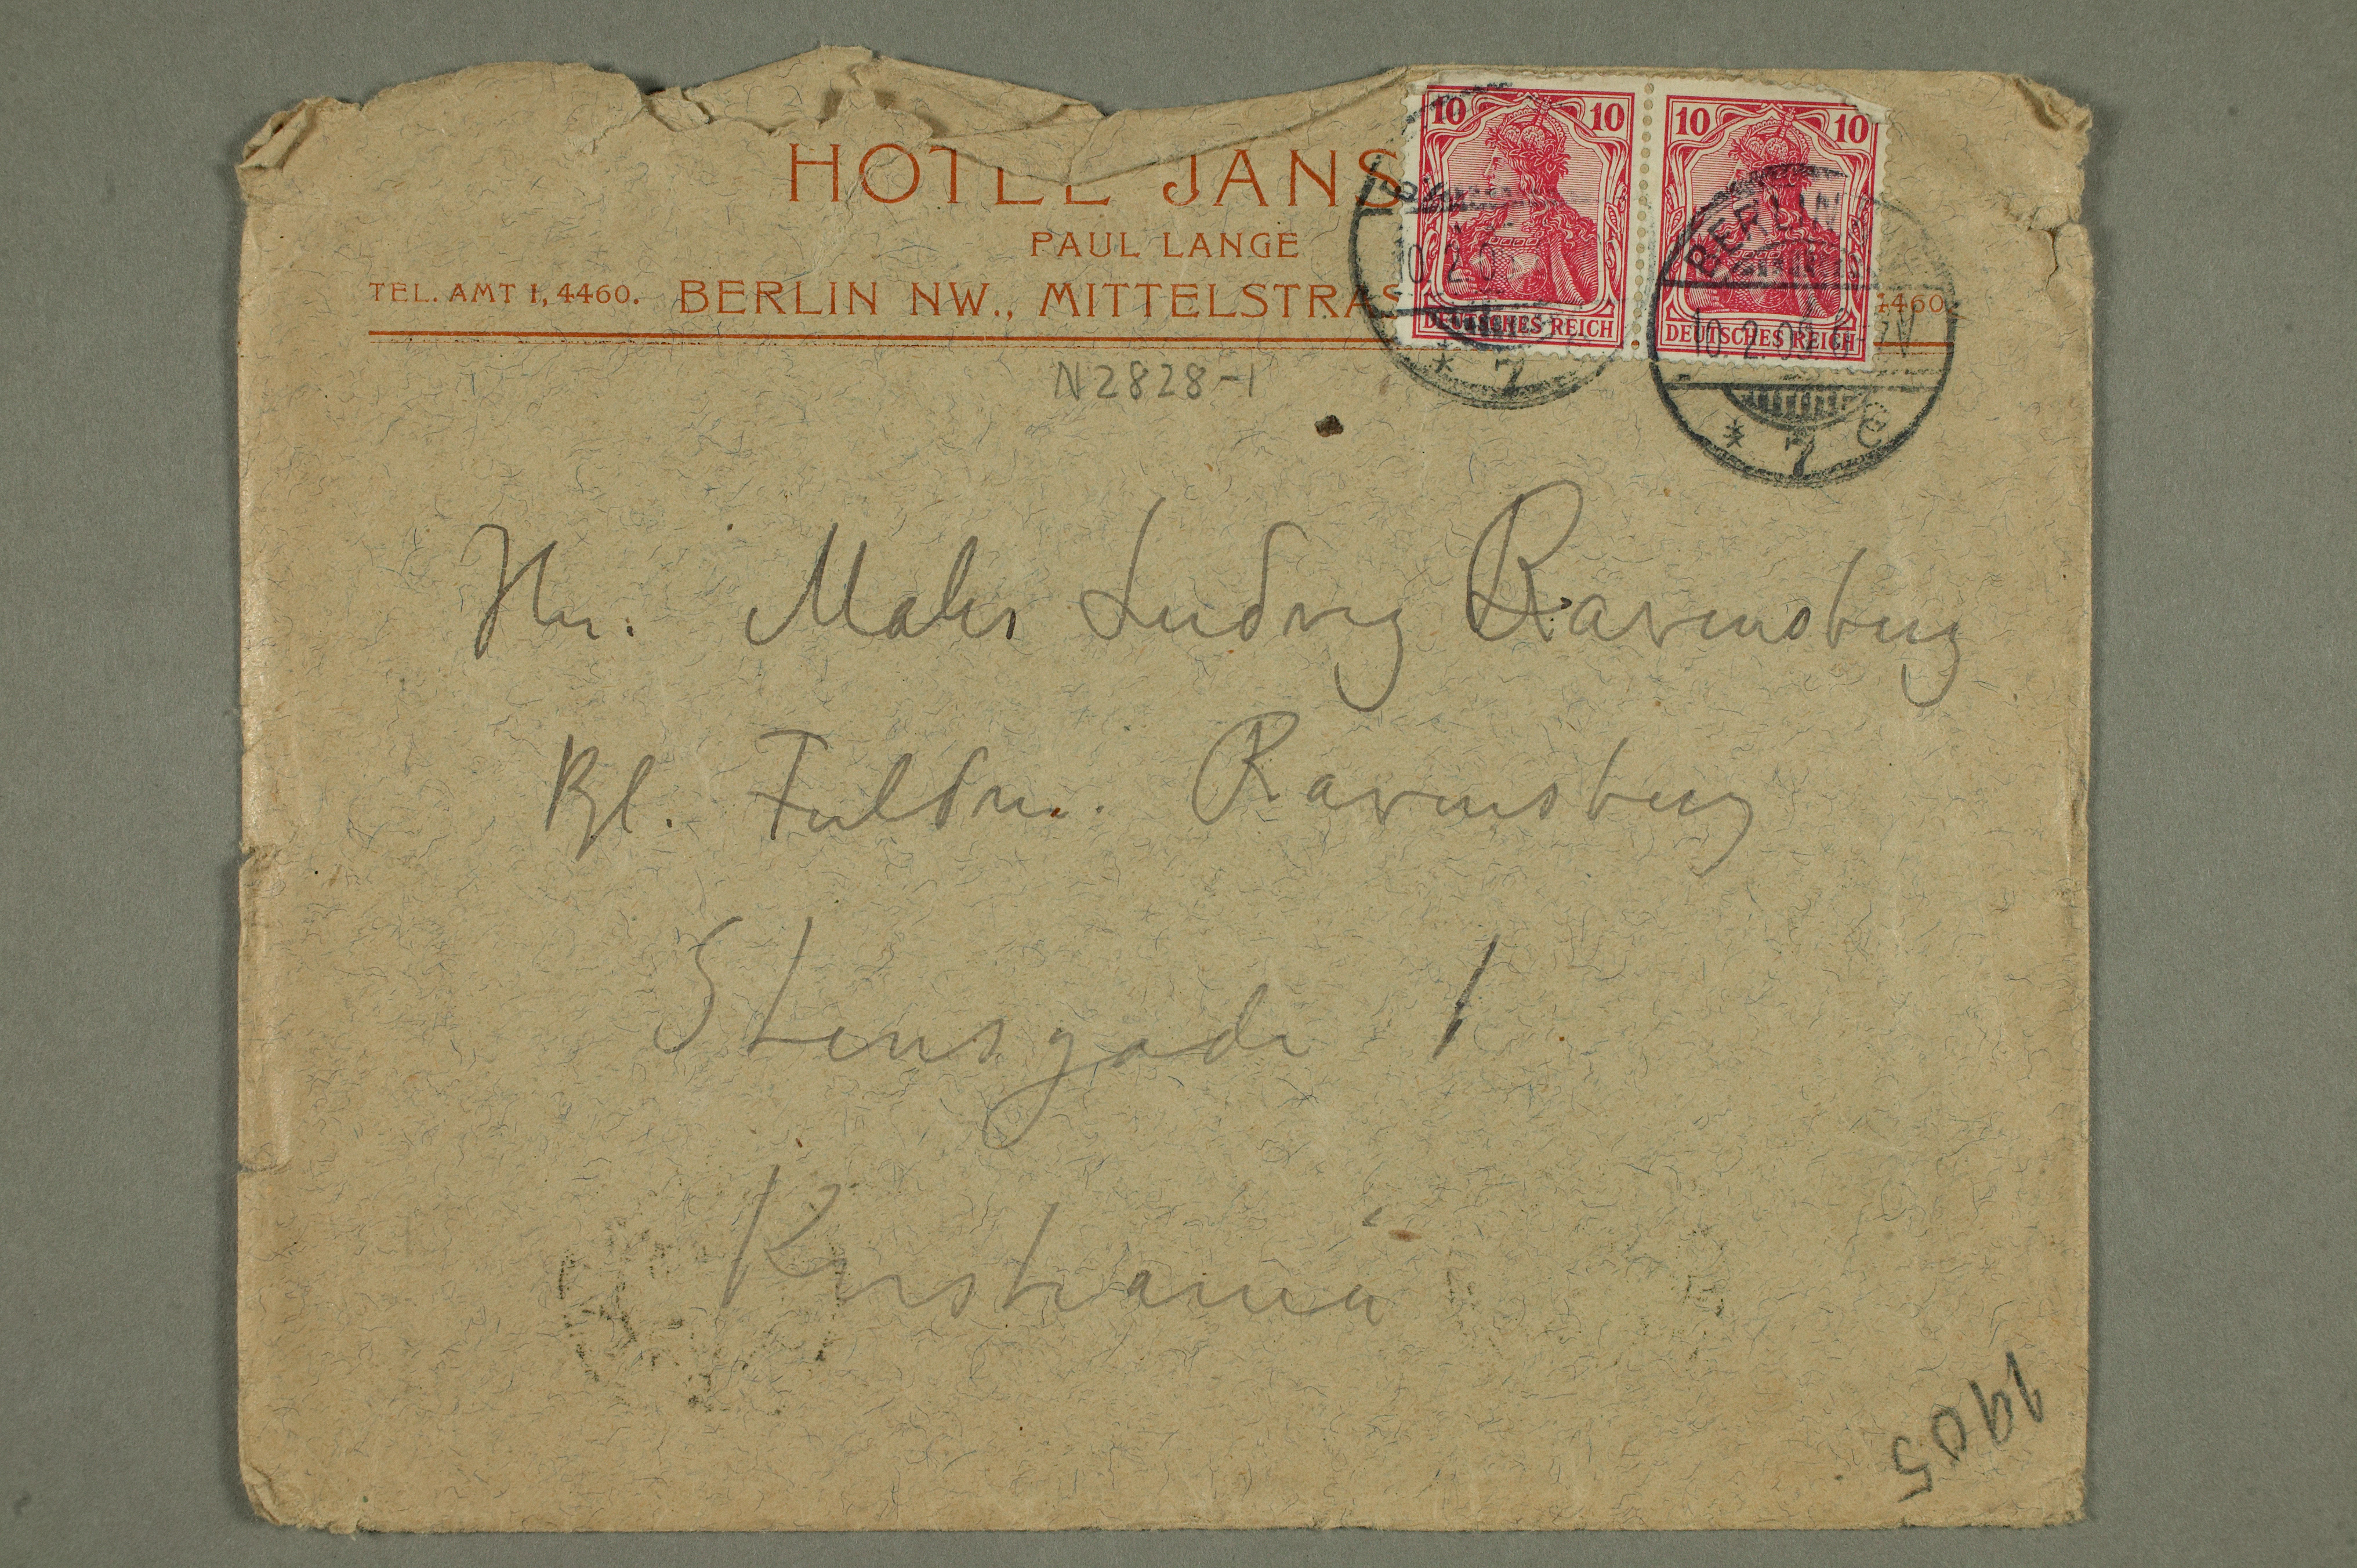 HOTEL JANS
PAUL LANGE
TEL. AMT 1, 4460. BERLIN NW., MITTELSTRAS 4460.
10 10 10 10
DEUTSCHES REICH DEUTSCHES REICH
BERLIN
10.2.09. 6-7V
* 7 * 7 e
N2828-1
Hr. Maler Ludvig Ravensberg
Ravensberg
Stensgade 1
Kristiania
1905